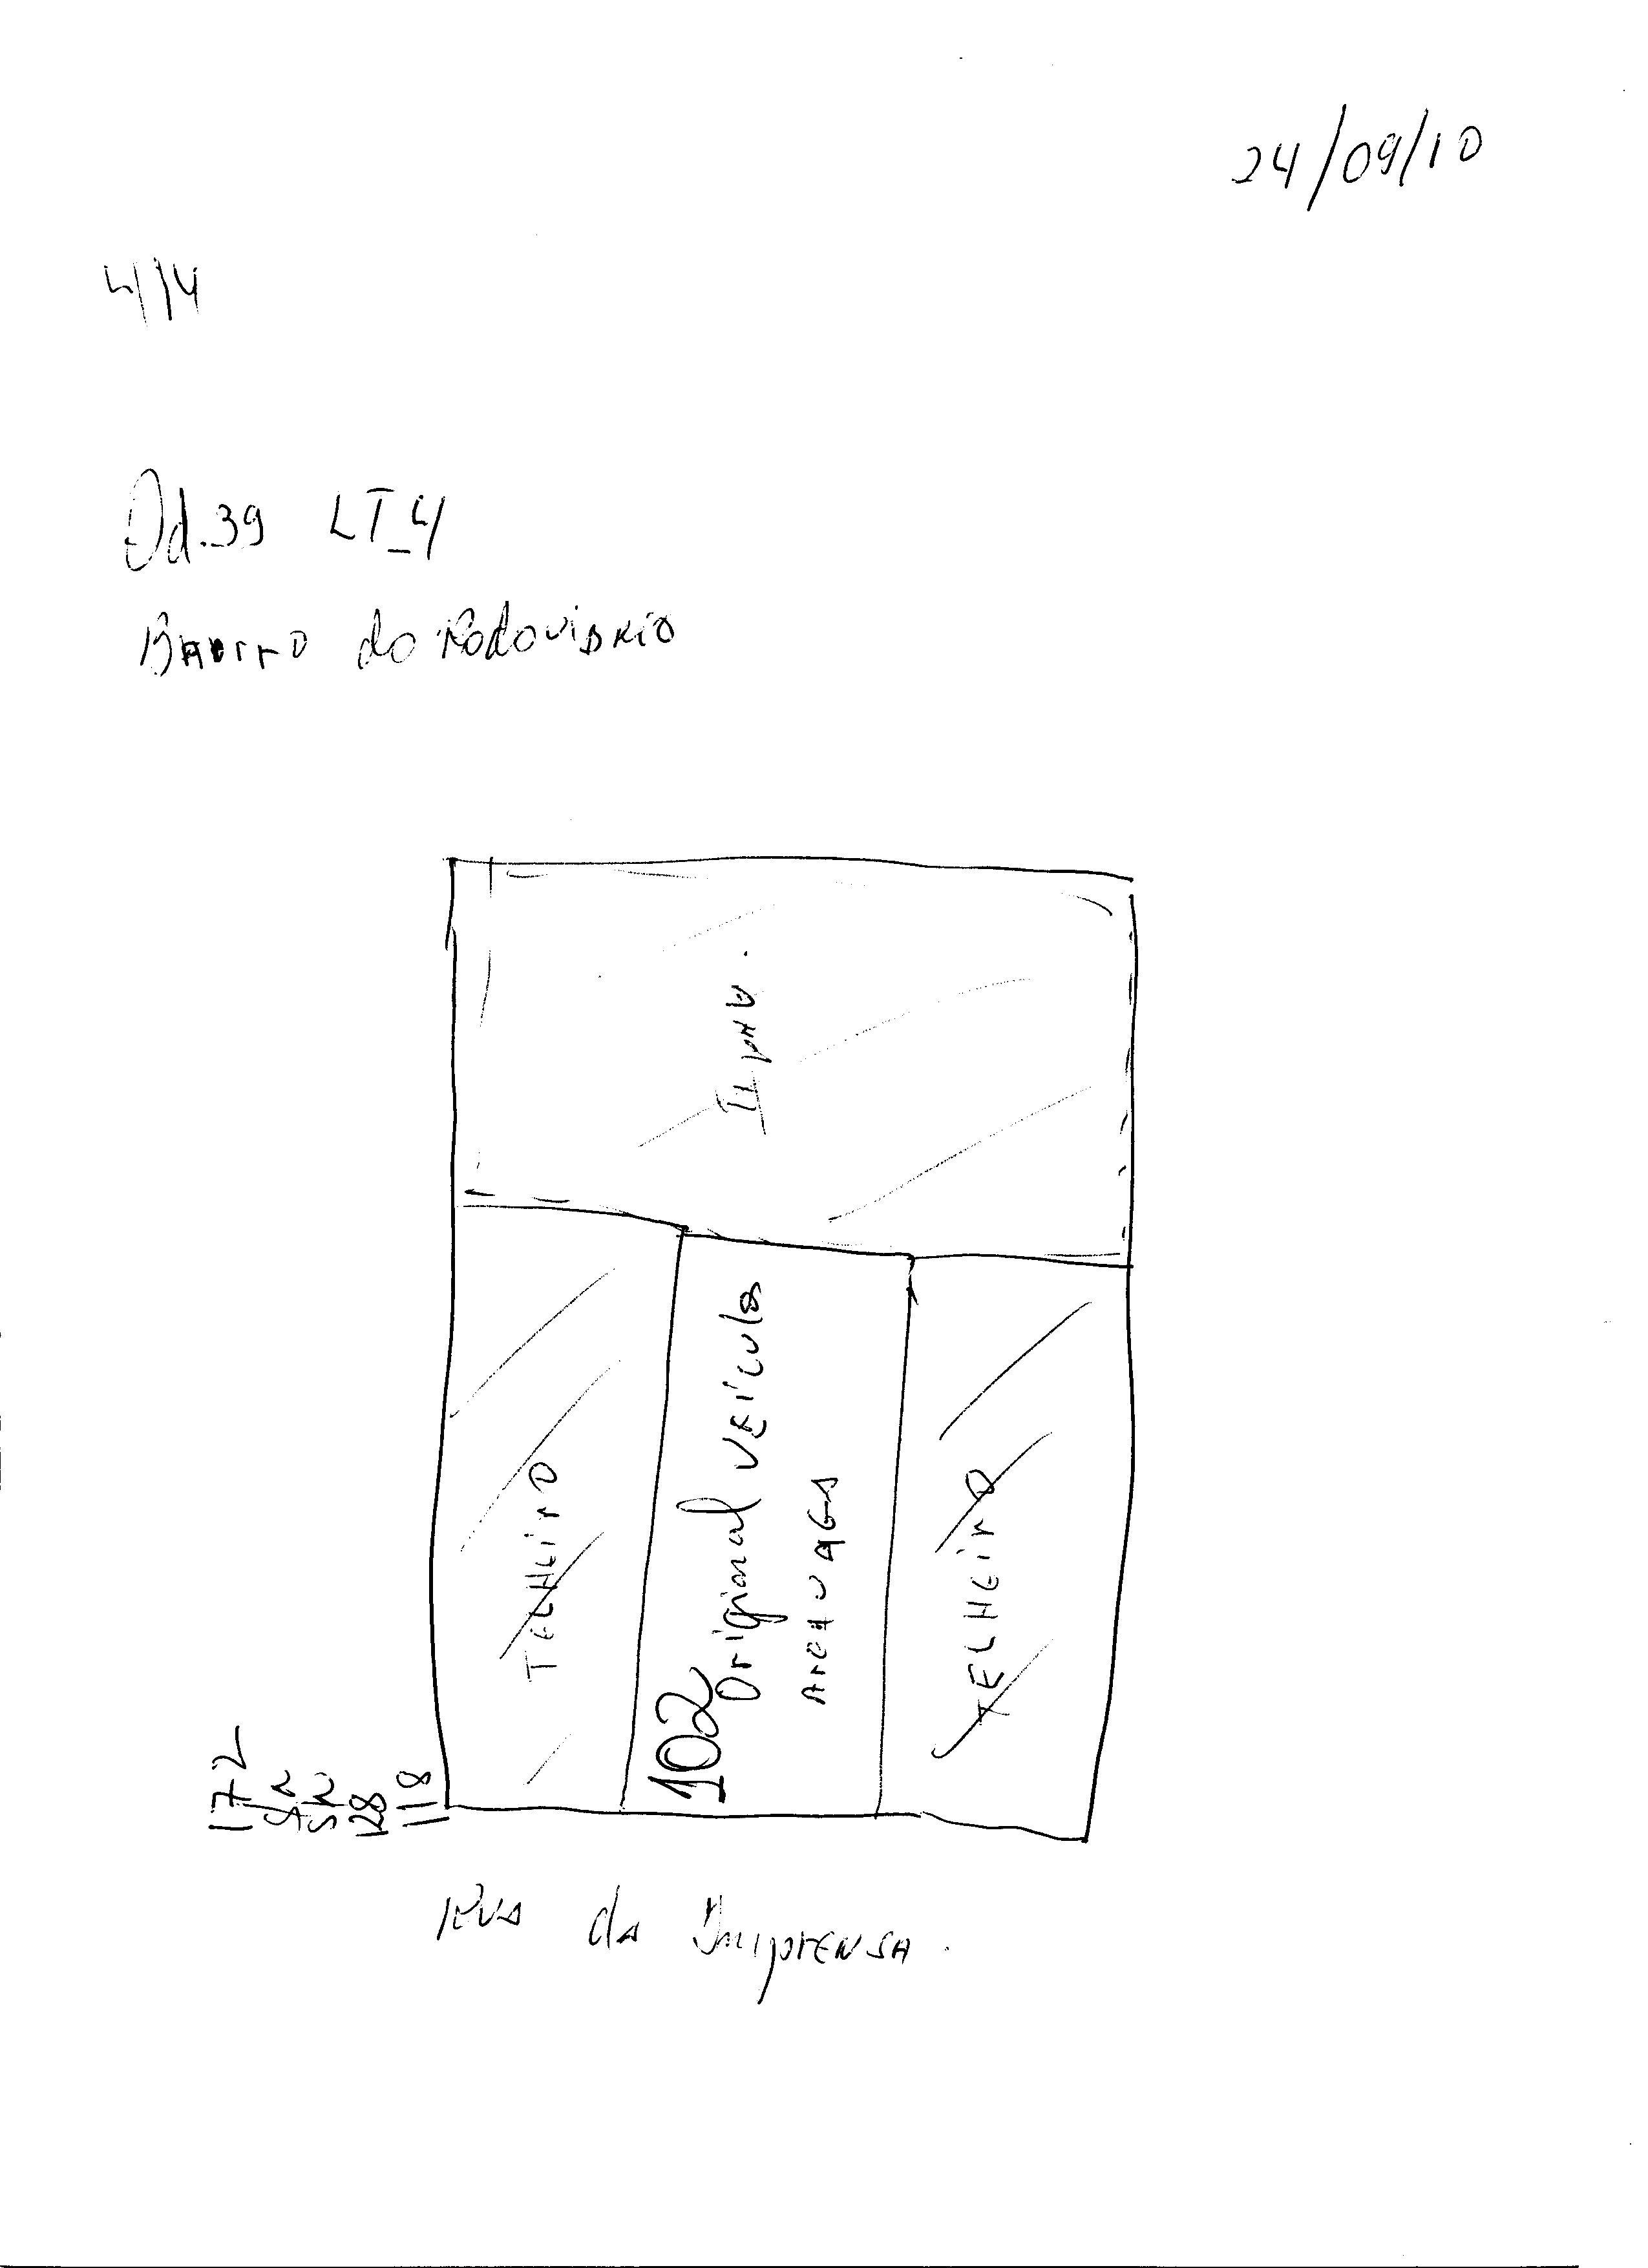 24/09/10
4/14
Qd.39 LT_4
Bairro do Rodoviário
TELHEirO
102
Original VEículos
ArEA VAGA
TELHEirO
172
128
118
RUA da ImprENSA.